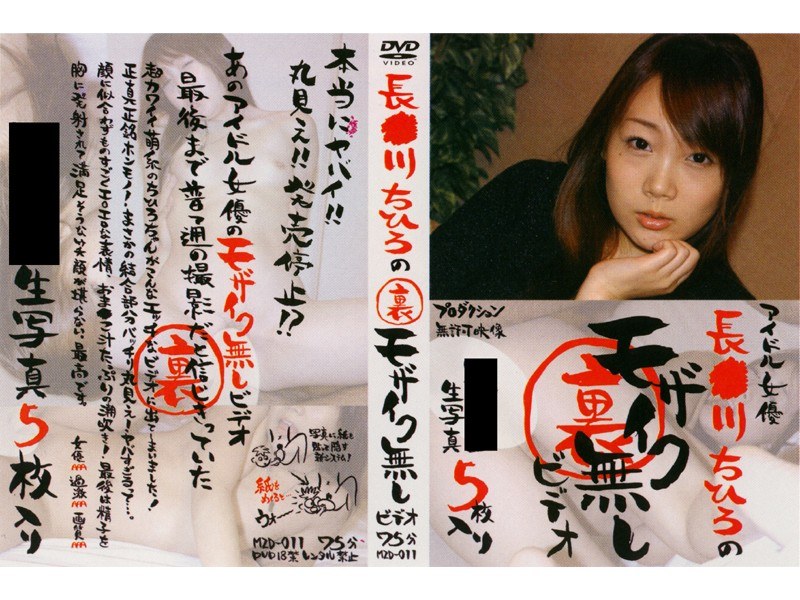 本当にヤバイ!!
丸見え!!発売停止!?
あのアイドル女優のモザイク無しビデオ
最後まで普通の撮影だと信じきっていた
裏
超カワイイ萌系のちひろちゃんがこんなエッチなビデオに出てしまいました!
正真正銘ホンモノ!まさかの結合部分バッチリ丸見え!ヤバすぎるって…。
顔に似合わずものすごくエロエロな表情、おま●こ汁たっぷりの潮吹き!最後は精子を
胸に発射されて満足そうな笑顔が堪らない最高です。
女優AAA 過激AAA 画質AAA
生写真5枚入り
写真に紙を
貼って隠す
新システム!
紙を
めくると…
ウォー
MZD-011 75分
DVD18禁 レンタル禁止
DVD
VIDEO
長●川ちひろの
裏
モザイク無し
ビデオ
75分
MZD-011
プロダクション
無許可映像
アイドル女優
長●川ちひろの
裏
モザイク無し
ビデオ
生写真
5枚
入り